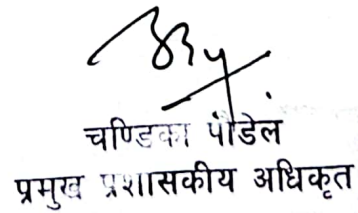 चण्डिका पौडेल
प्रमुख प्रशासकीय अधिकृत